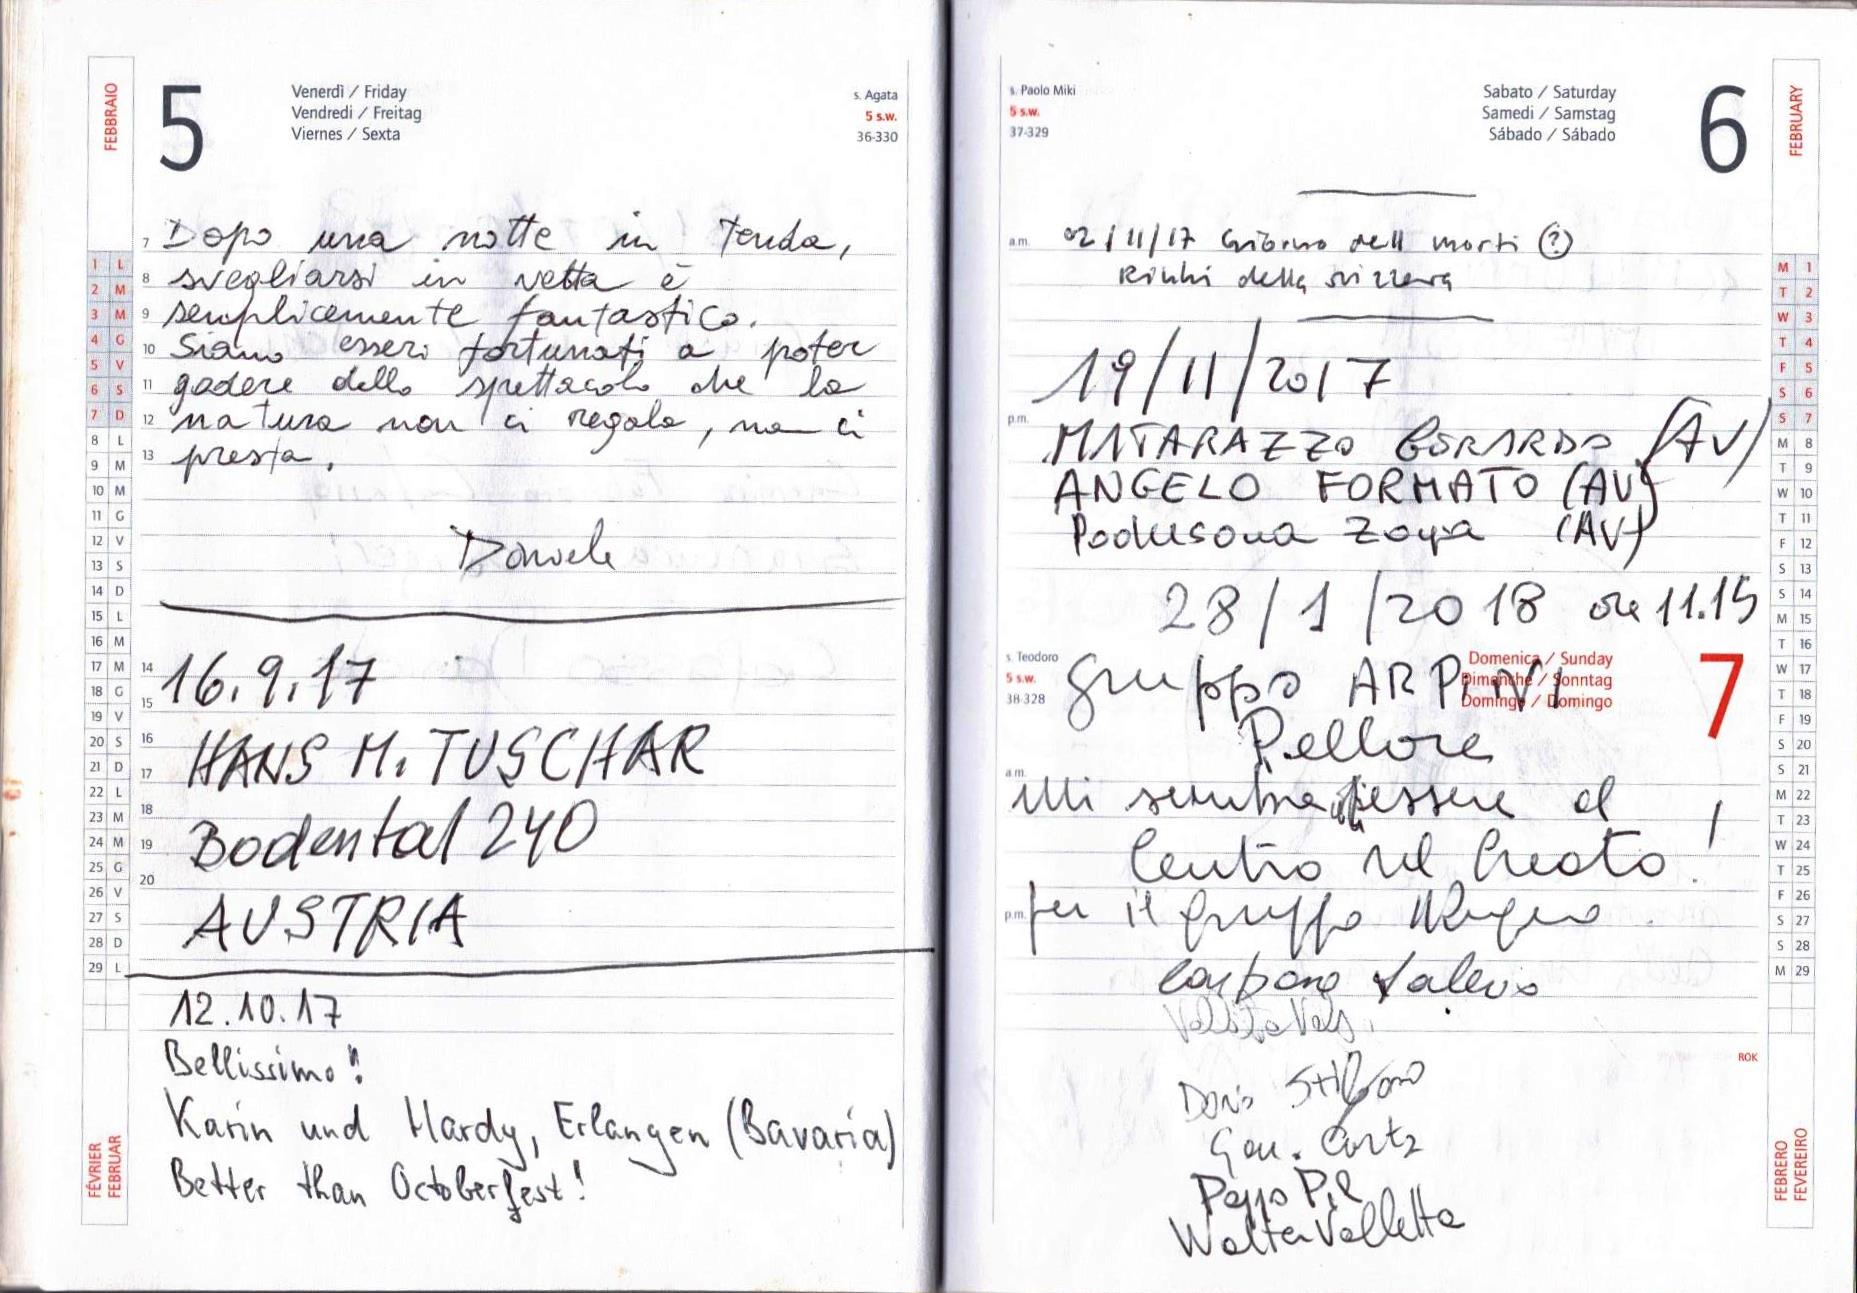 FEBBRAIO
5
Venerdì / Friday
Vendredi / Freitag
Viernes / Sexta
s. Agata
5 s.w.
36-330
7 Dopo una notte in tenda,
8 svegliarsi in vetta è
9 semplicemente fantastico.
10 Siamo esseri fortunati a poter
11 godere dello spettacolo che la
12 natura non ci regala, ma ci
13 presta.
Daniele
14 16.9.17
15
16 HANS M. TUSCHAR
17
18 Bodental 240
19
20
AUSTRIA
12.10.17
Bellissimo!!
Karin und Hardy, Erlangen (Bavaria)
Better than Octoberfest!
1 L
2 M
3 M
4 G
5 V
6 S
7 D
8 L
9 M
10 M
11 G
12 V
13 S
14 D
15 L
16 M
17 M
18 G
19 V
20 S
21 D
22 L
23 M
24 M
25 G
26 V
27 S
28 D
29 L
FÉVRIER
FEBRUAR
s. Paolo Miki
5 s.w.
37-329
Sabato / Saturday
Samedi / Samstag
Sábado / Sábado
6
FEBRUARY
a.m. 02/11/17 Giorno dell morti (?)
della svizzera
19/11/2017
p.m.
MATARAZZO GERARDO (AV)
ANGELO FORMATO (AV)
Zoya (AV)
28/1/2018 ore 11.15
s. Teodoro
5 s.w.
38-328
Domenica / Sunday
Dimanche / Sonntag
Domingo / Domingo
7
Gruppo ARPINI
Pellore
a.m.
Mi sembra essere al
centro del Creato!
p.m.
per il gruppo
Valerio
ROK
Doris
Gen.
Peppo Pil
Walter Valletta
M 1
T 2
W 3
T 4
F 5
S 6
S 7
M 8
T 9
W 10
T 11
F 12
S 13
S 14
M 15
T 16
W 17
T 18
F 19
S 20
S 21
M 22
T 23
W 24
T 25
F 26
S 27
S 28
M 29
FEBRERO
FEVEREIRO